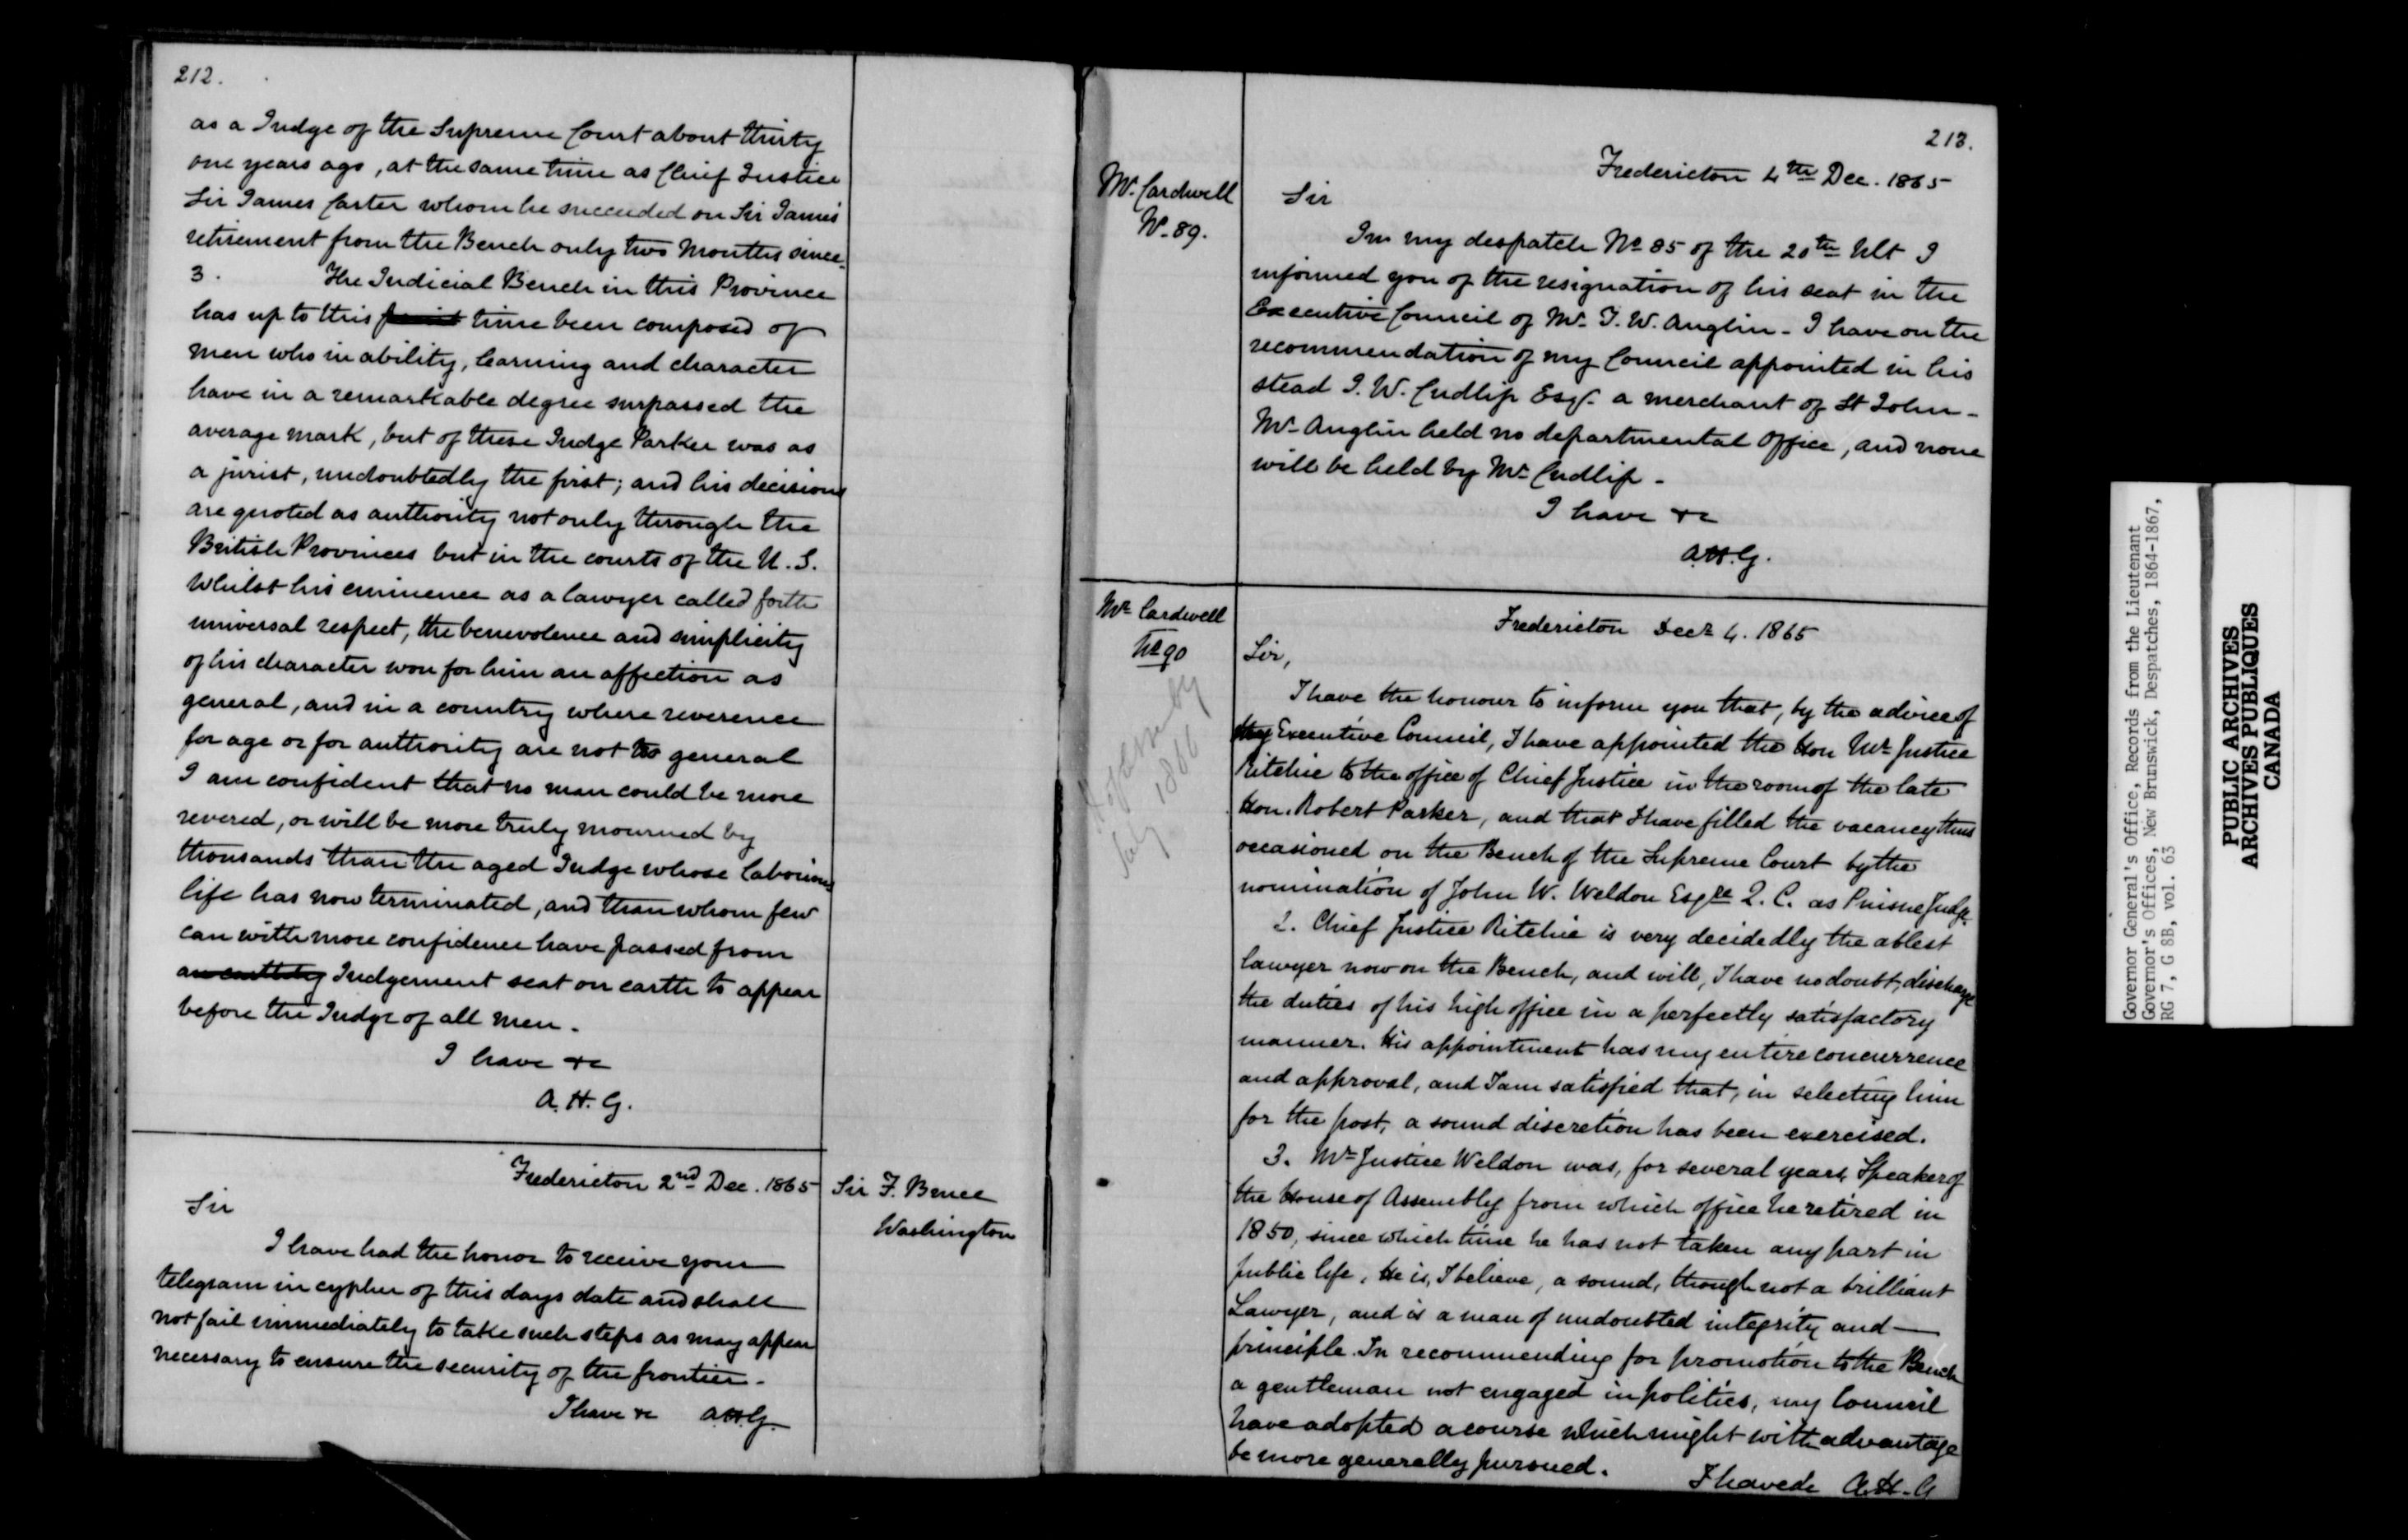 212.
as a Judge of the Supreme Court about thirty
one years ago, at the same time as Chief Justice
Sir James Carter whom he succeeded on Sir James'
retirement from the Bench only two Months since.
3. The Judicial Bench in this Province
has up to this point time been composed of
men who in ability, learning and character
have in a remarkable degree surpassed the
average mark, but of these Judge Parker was as
a jurist, undoubtedly the first; and his decisions
are quoted as authority not only through the
British Provinces but in the courts of the U. S.
Whilst his eminence as a lawyer called forth
universal respect, the benevolence and simplicity
of his character won for him an affection as
general, and in a country where reverence
for age or for authority are not too general
I am confident that no man could be more
revered, or will be more truly mourned by
thousands than the aged Judge whose laborious
life has now terminated, and than whom few
can with more confidence have passed from
an earthly Judgement seat on earth to appear
before the Judge of all men.
I have &c
A. H. G.
Fredericton 2nd Dec. 1865
Sir F. Bruce
Washington
Sir
I have had the honor to receive your
telegram in cypher of this days date and shall
not fail immediately to take such steps as may appear
necessary to ensure the security of the frontier.
I have &c A.H.G.
213.
Fredericton 4th Dec. 1865
Mr. Cardwell
No. 89.
Sir
In my despatch No 85 of the 20th Ult I
informed you of the resignation of his seat in the
Executive Council of Mr. T. W. Anglin - I have on the
recommendation of my Council appointed in his
stead J. W. Cudlip Esqr. a merchant of St John -
Mr. Anglin held no departmental office, and none
will be held by Mr Cudlip -
I have &c
A.H.G.
Mr Cardwell
No 90
Fredericton Decr 4. 1865
Sir,
I have the honour to inform you that, by the advice of
my Executive Council, I have appointed the Hon Mr Justice
Ritchie to the office of Chief Justice in the room of the late
Hon. Robert Parker, and that I have filled the vacancy thus
occasioned on the Bench of the Supreme Court by the
nomination of John W. Weldon Esqre Q. C. as Puisne Judge.
2. Chief Justice Ritchie is very decidedly the ablest
lawyer now on the Bench, and will, I have no doubt, discharge
the duties of his high office in a perfectly satisfactory
manner. His appointment has my entire concurrence
and approval, and I am satisfied that, in selecting him
for the post, a sound discretion has been exercised.
3. Mr Justice Weldon was, for several years, Speaker of
the House of Assembly from which office he retired in
1850, since which time he has not taken any part in
public life. He is, I believe, a sound, though not a brilliant
Lawyer, and is a man of undoubted integrity and
principle. In recommending for promotion to the Bench
a gentleman not engaged in politics, my Council
have adopted a course which might with advantage
be more generally pursued.
I have &c A.H.G
Assembly
July 1866
Governor General's Office, Records from the Lieutenant
Governor's Offices, New Brunswick, Despatches, 1864-1867,
RG 7, G 8B, vol. 63
PUBLIC ARCHIVES
ARCHIVES PUBLIQUES
CANADA